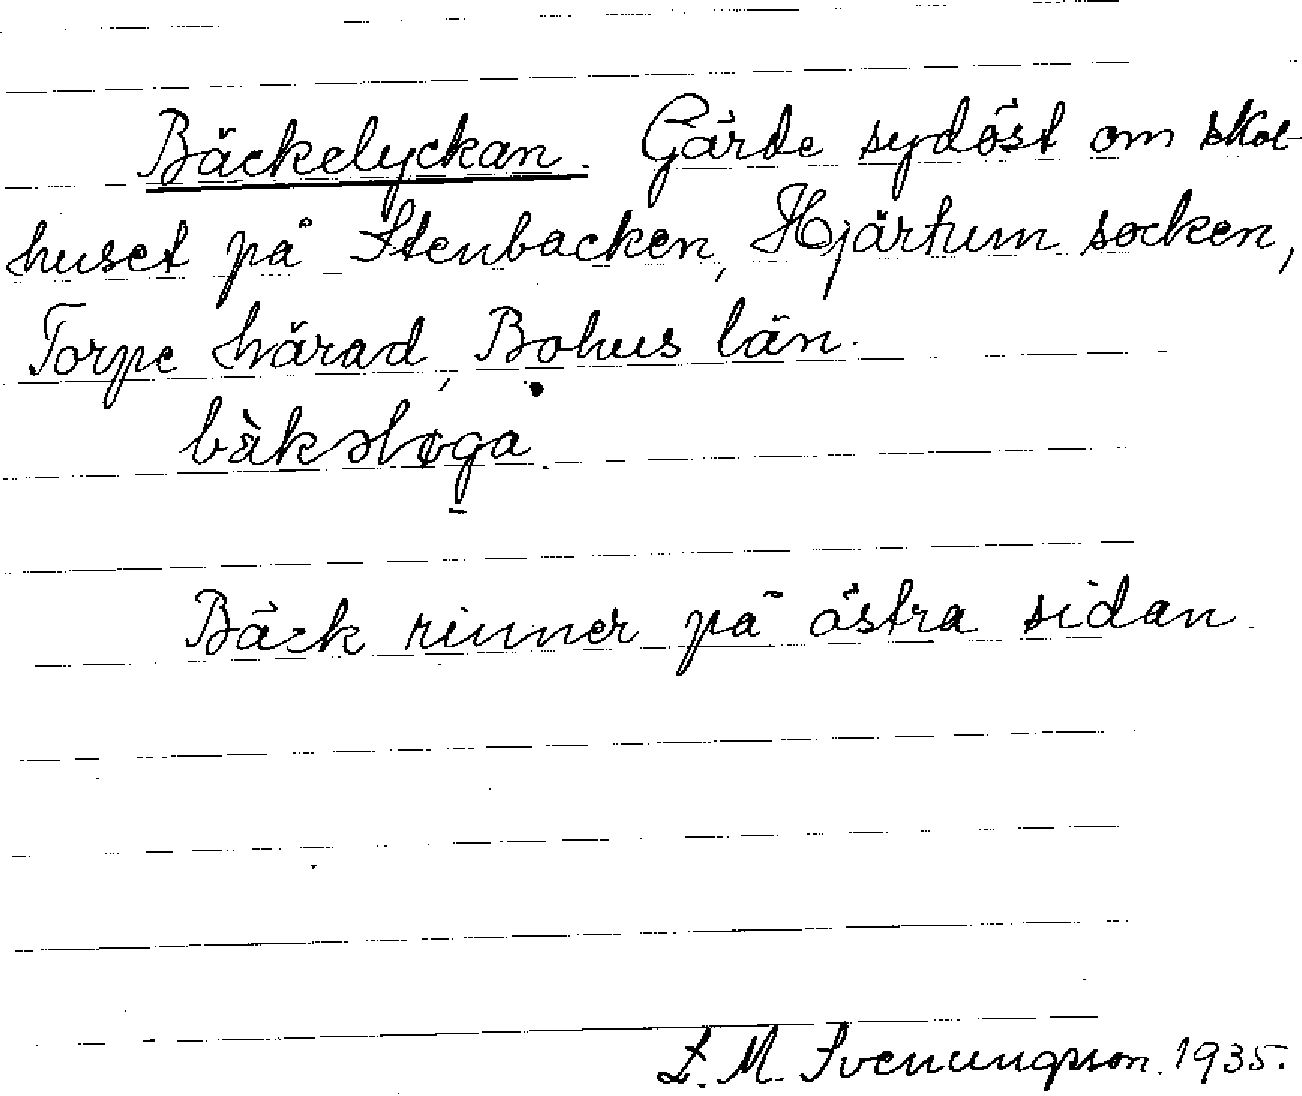 Bäckelyckan. Gärde sydöst om skol
huset på Stenbacken, Hjärtum socken,
Torpe härad, Bohus län.
bàkəløga.
Bäck rinner på östra sidan.
L. M. Svenungsson. 1935.